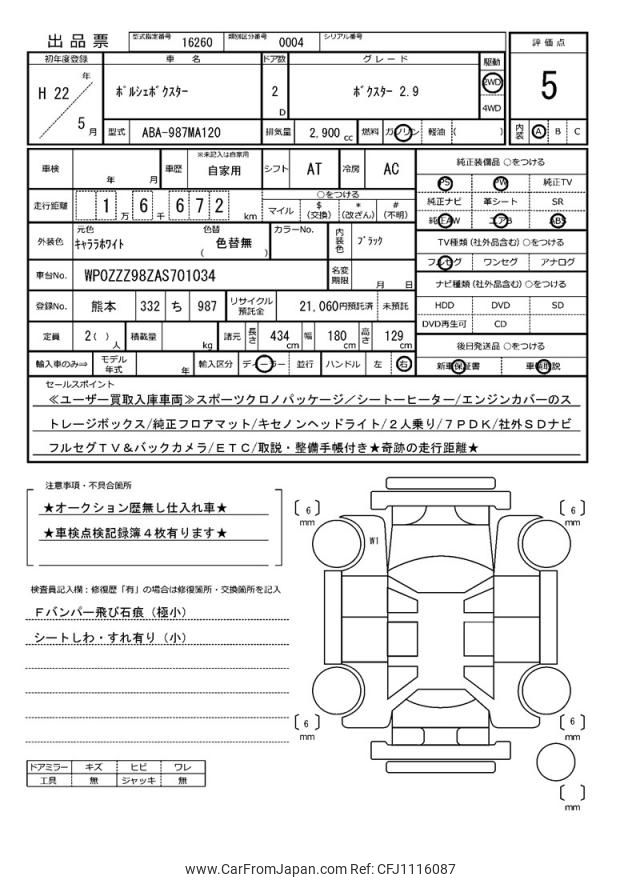 出品票 型式指定番号 16260 類別区分番号 0004 シリアル番号
評価点
5
内装 A B C
初年度登録 車名 ドア数 グレード 駆動
H 22 年 5 月 ポルシェボクスター 2 D ボクスター 2.9 2WD 4WD
型式 ABA-987MA120 排気量 2,900 cc 燃料 ガソリン 軽油 ( )
車検 年 月 車歴 ※未記入は自家用 自家用 シフト AT 冷房 AC
走行距離 1 万 6 千 6 7 2 km ○をつける
マイル $ (交換) * (改ざん) # (不明)
外装色 元色 キャララホワイト 色替 ( 色替無 ) カラーNo. 内装色 ブラック
車台No. WP0ZZZ98ZAS701034 名変期限 月 日
登録No. 熊本 332 ち 987 リサイクル預託金 21,060円預託済 未預託
定員 2( ) 人 積載量 kg 諸元 長さ 434 cm 幅 180 cm 高さ 129 cm
輸入車のみ⇒ モデル年式 年 輸入区分 ディーラー 並行 ハンドル 左 右
純正装備品 ○をつける
PS PW 純正TV
純正ナビ 革シート SR
純正AW エアB ABS
TV種類 (社外品含む) ○をつける
フルセグ ワンセグ アナログ
ナビ種類 (社外品含む) ○をつける
HDD DVD SD
DVD再生可 CD
後日発送品 ○をつける
新車保証書 車輌取説
セールスポイント
≪ユーザー買取入庫車両≫スポーツクロノパッケージ／シートーヒーター/エンジンカバーのス
トレージボックス/純正フロアマット/キセノンヘッドライト/２人乗り/７PDK/社外SDナビ
フルセグTV＆バックカメラ/ETC/取説・整備手帳付き★奇跡の走行距離★
注意事項・不具合箇所
★オークション歴無し仕入れ車★
★車検点検記録簿４枚有ります★
検査員記入欄：修復歴「有」の場合は修復箇所・交換箇所を記入
Ｆバンパー飛び石痕（極小）
シートしわ・すれ有り（小）
ドアミラー キズ ヒビ ワレ
工具 無 ジャッキ 無
〔 6 〕 mm
〔 6 〕 mm
W1
〔 6 〕 mm
〔 6 〕 mm
〔 〕 mm
www.CarFromJapan.com Ref: CFJ1116087